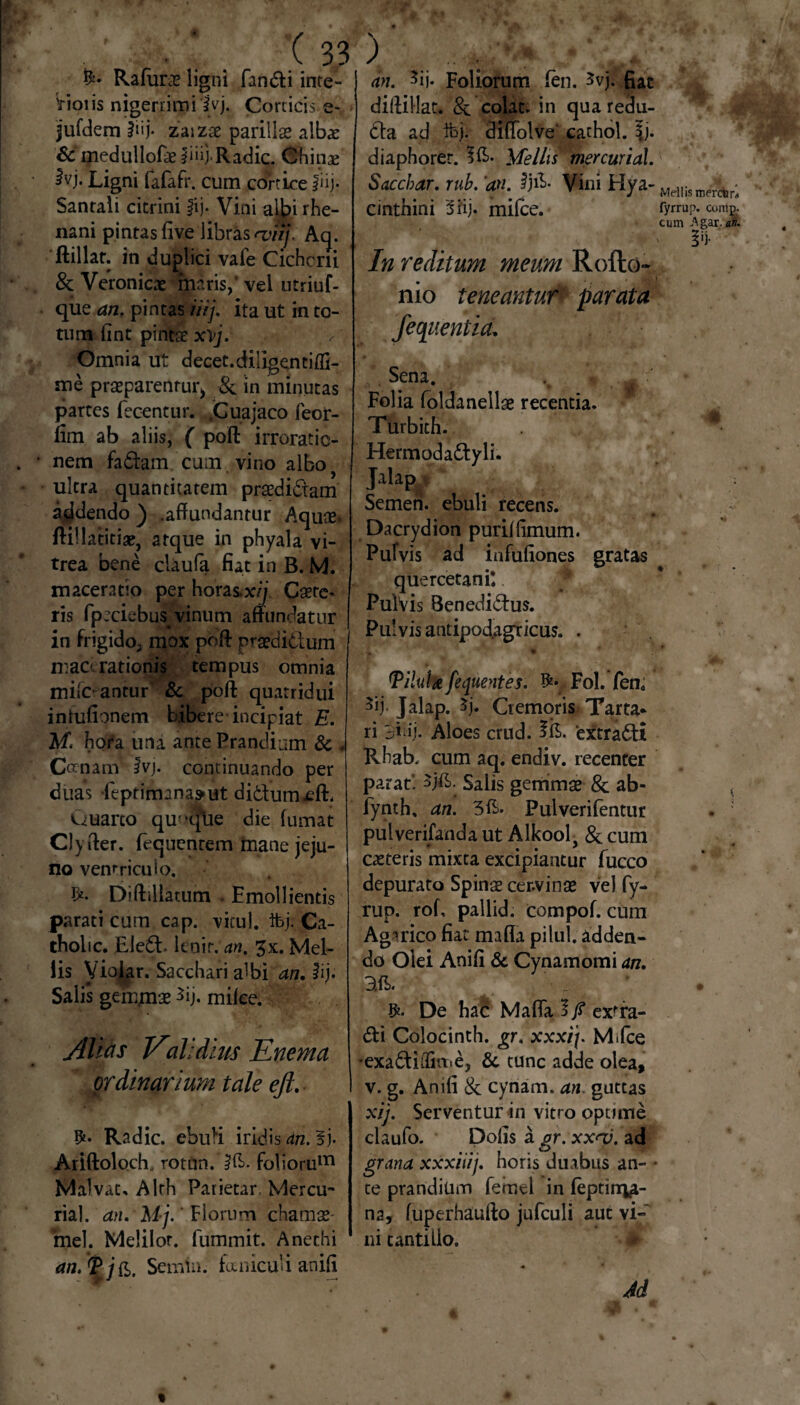 ( 33 )
℞. Rasuræ ligni sancti inte-
rioris nigerrimi ℥vj. Corticis e-
jusdem ℥iij. zaizæ parillæ albæ
& medullosæ ℥iiij. Radic. Chinæ
℥vj. Ligni sasafr. cum cortice ℥iij.
Santali citrini ℥ij. Vini albi rhe-
nani pintas sive libras viij. Aq.
stillat. in duplici vase Cichorii
& Veronicæ maris, vel utrius-
que an. pintas iiij. ita ut in to-
tum sint pintæ xvj.
Omnia ut decet diligentissi-
mè præparentur, & in minutas
partes secentur. Guajaco seor-
sim ab aliis, ( post irroratio-
nem factam cum vino albo,
ultra quantitatem prædictam
addendo ) affundantur Aquæ
stillatitiæ, atque in phyala vi-
trea benè clausa fiat in B. M.
maceratio per horas xij. Cæte-
ris speciebus vinum affundatur
in frigido, mox post prædictum
macerationis tempus omnia
misceantur & post quatridui
infusionem bibere incipiat E.
M. hora una ante Prandium &
Cœnam ℥vj. continuando per
duas septimanas ut dictum est.
Quarto quoque die sumat
Clyster. sequentem mane jeju-
no ventriculo.
℞. Distillatum Emollientis
parati cum cap. vitul. ℔j. Ca-
tholic. Elect. lenit. an. ʒx. Mel-
lis Violar. Sacchari albi an. ℥ij.
Salis gemmæ ʒij. misce.
Alias Validius Enema
ordinarium tale est.
℞. Radic. ebuli iridis an. ℥j.
Aristoloch. rotun. ℥ß. foliorum
Malvæ, Alth Parietar. Mercu-
rial. an. Mj. Florum chamæ-
mel. Melilot. summit. Anethi
an. Pjß. Semin. fœniculi anisi
an. ʒij. Foliorum sen. ʒvj. fiat
distillat. & colat. in qua redu-
cta ad ℔j. dissolve cathol. ℥j.
diaphoret. ℥ß. Mellis mercurial.
Sacchar. rub. an. ℥jß. Vini Hya-
cinthini ℥iij. misce.
Mellis mercur.
syrrup. comp.
cum Agar. an.
℥ij.
In reditum meum Rosto-
nio teneantur parata
sequentia.
Sena.
Folia soldanellæ recentia.
Turbith.
Hermodactyli.
Jalap.
Semen. ebuli recens.
Dacrydion purissimum.
Pulvis ad infusiones gratas
quercetani.
Pulvis Benedictus.
Pulvis antipodagricus.
Pilulæ sequentes. ℞. Fol. sen.
ʒij. Jalap. ʒj. Cremoris Tarta-
ri ʒiij. Aloes crud. ℥ß. extracti
Rhab. cum aq. endiv. recenter
parat. ʒjß. Salis gemmæ & ab-
synth. an. ʒß. Pulverisentur
pulverisanda ut Alkool, & cum
cæteris mixta excipiantur succo
depurato Spinæ cervinæ vel sy-
rup. ros. pallid. compos. cum
Agarico fiat massa pilul. adden-
do Olei Anisi & Cynamomi an.
℈ß.
℞. De hac Massa ℥ß extra-
cti Colocinth. gr. xxxij. Misce
exactissimè, & tunc adde olea,
v. g. Anisi & cynam. an. guttas
xij. Serventur in vitro optimè
clauso. Dosis à gr. xxv. ad
grana xxxiiij. horis duabus an-
te prandium semel in septima-
na, superhausto jusculi aut vi-
ni tantillo.
Ad